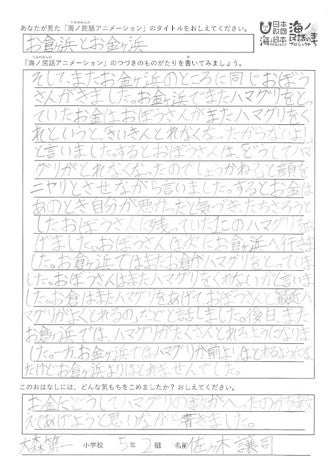 あなたが見た「海ノ民話アニメーション」のタイトルをおしえてください。
お倉ヶ浜とお金ヶ浜
「海ノ民話アニメーション」のつづきのものがたりを書いてみましょう。
そして、またお金ヶ浜のところに同じおぼう
さんがきました。お金ヶ浜でまたハマグリをとって
いたお金はおぼうさんがまたハマグリをく
れというと、さいきんとれなくな
と言いました。するとおぼうさんは、どうしてハマ
グリがとれなくなったのでしょうかねと、と
ニヤリとさせながら言いました。するとお金は
あのとき自分が悪かったと気づきたちさろう
としたおぼうさんに残っていたのハマグリを
げました。おぼうさんは次にお倉ヶ浜へ行きま
した。お倉ヶ浜ではまたお倉がハマグリをとっていま
した。おぼうさんはまたハマグリをくれないかと言いま
した。お倉はまたハマグリをあげておぼうさんと最近ハ
マグリがよくとれるの、などと話しました。後日また
お倉ヶ浜では、ハマグリがたくさんとれるようになりま
した。一方、お金ヶ浜ではハマグリが前よりはとれるようになっ
たけどお倉ヶ浜よりはとれませんでした。
このおはなしには、どんな気もちをこめましたか？おしえてください。
お金にどうしてハマグリの数がへったのかを教
えてあげようと思いながら書きました。
大森第一 小学校 5年 2組 名前 佐々木 譲司